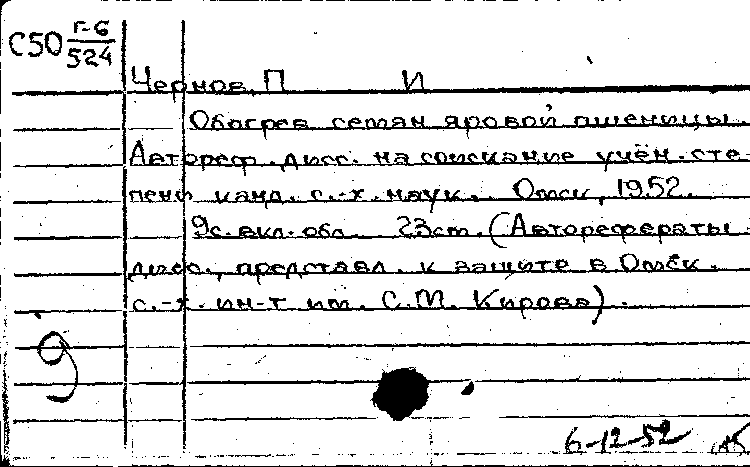 С50 Г-6
524
Чернов, П И
Обогрев семян яровой пшеницы.
Автореф. дисс. на соискание учён. сте
пени канд. с.-х. наук. Омск, 1952.
9с. вкл. обл. 23см. (Авторефераты
дисс., представл. к защите в Омск.
с.-х. ин-т им. С.М. Кирова).
9
6-12-52